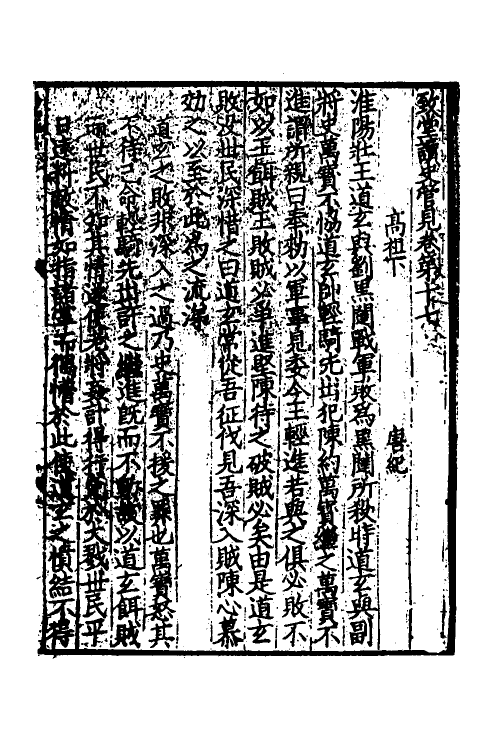 致堂讀史管見卷第十七
高祖下 唐紀
淮陽壯王道玄與劉黑闥戰軍敗爲黑闥所殺時道玄與副
將史萬寶不協道玄帥輕騎先出犯陳約萬寶繼之萬寶不
進謂所親曰奉勑以軍事見委今王輕進若與之俱必敗不
如以王餌賊王敗賊必爭進堅陳待之破賊必矣由是道玄
敗没世民深惜之曰道玄常從吾征伐見吾深入賊陳心慕
効之以至於此爲之流涕
道玄之敗非深入之過乃史萬寶不援之罪也萬寶怒其
不待己命輕騎先出許之繼進旣而不動以道玄餌賊
世民不知其情遂使老將姦計得行於大戮世民平
日逆料敵情如指諸掌而獨惜於此使道玄之憤結不得